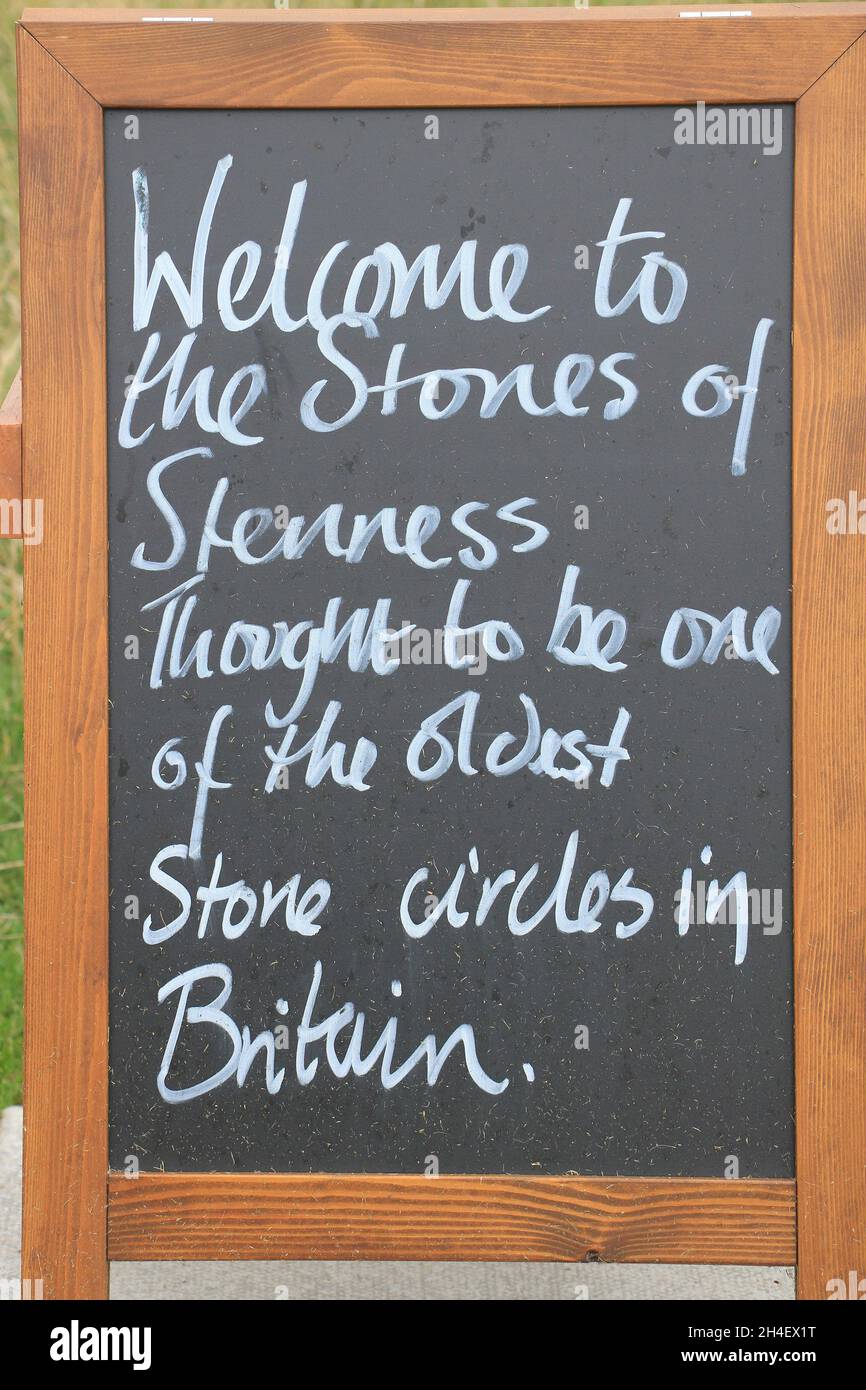 Welcome to
the Stones of
Stenness
Thought to be one
of the oldest
Stone circles in
Britain.
alamy
Image ID: 2H4EX1T
www.alamy.com